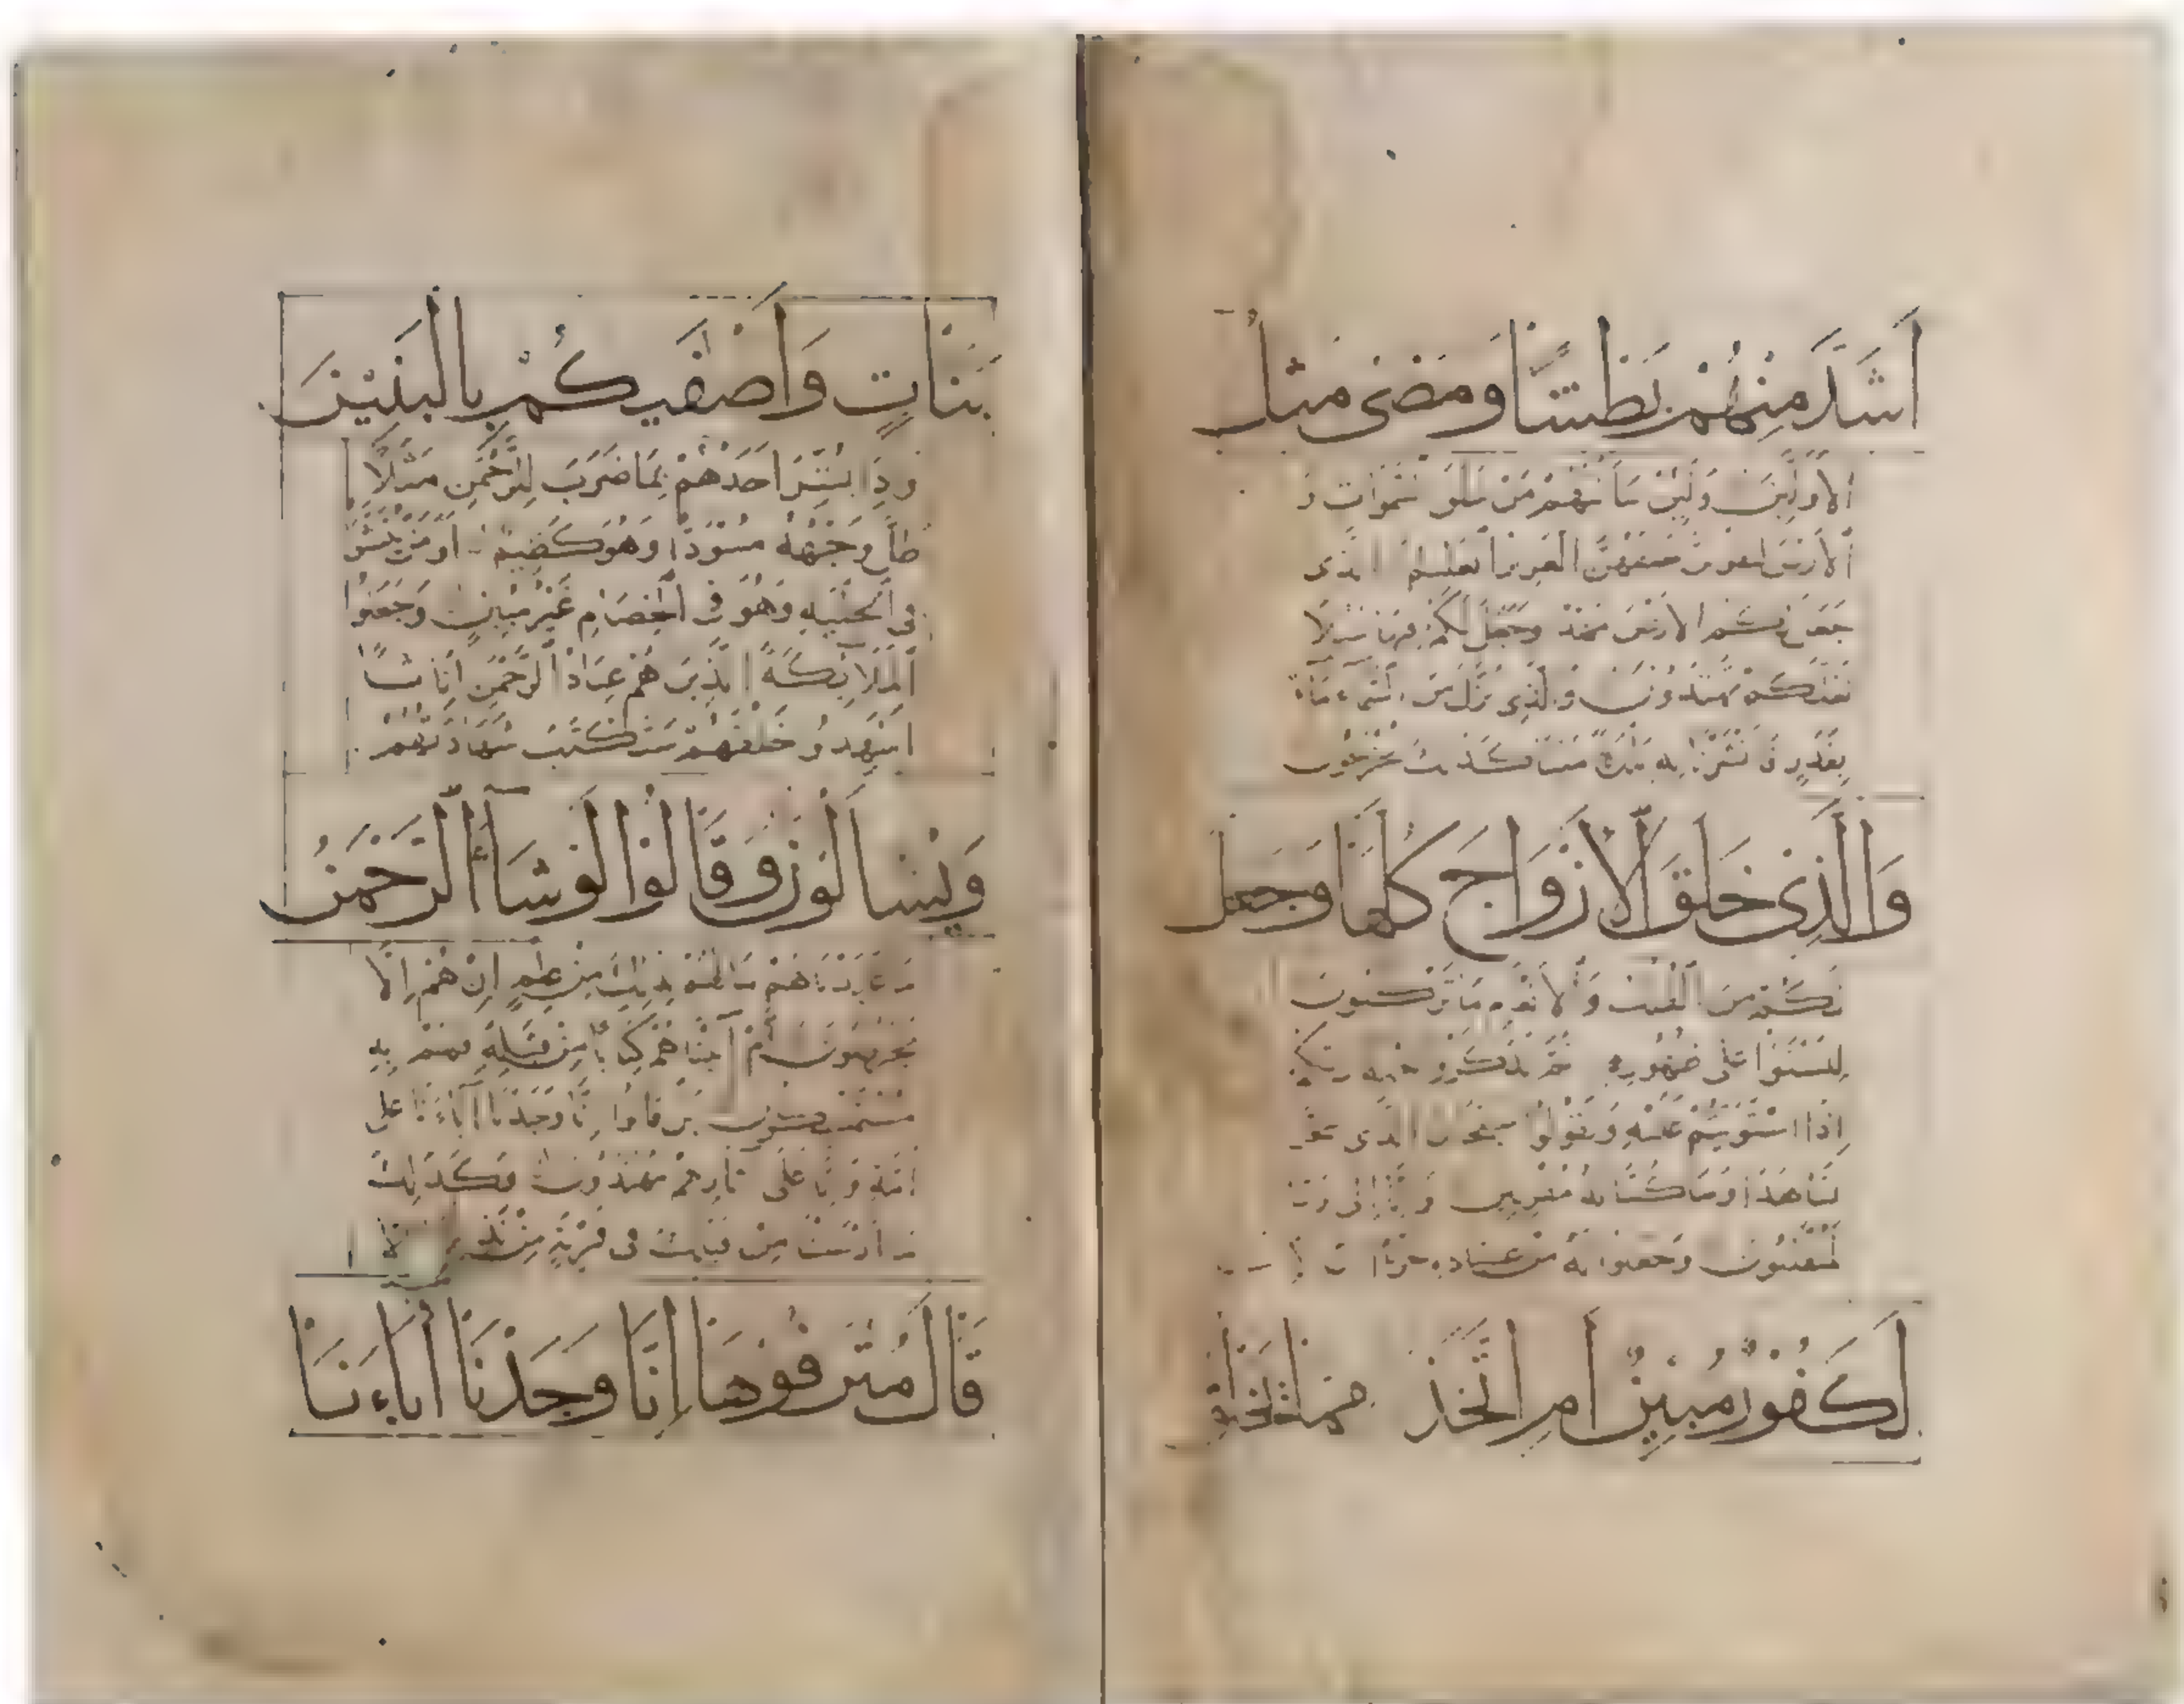 أَشَدَّ مِنْهُمْ بَطْشًا وَمَضَى مَثَلُ
الْأَوَّلِينَ وَلَئِنْ سَأَلْتَهُمْ مَنْ خَلَقَ السَّمَوَاتِ وَ
الْأَرْضَ لَيَقُولُنَّ خَلَقَهُنَّ الْعَزِيزُ الْعَلِيمُ الَّذِي
جَعَلَ لَكُمُ الْأَرْضَ مَهْدًا وَجَعَلَ لَكُمْ فِيهَا سُبُلًا
لَعَلَّكُمْ تَهْتَدُونَ وَالَّذِي نَزَّلَ مِنَ السَّمَاءِ مَاءً
بِقَدَرٍ فَأَنْشَرْنَا بِهِ بَلْدَةً مَيْتًا كَذَلِكَ تُخْرَجُونَ
وَالَّذِي خَلَقَ الْأَزْوَاجَ كُلَّهَا وَجَعَلَ
لَكُمْ مِنَ الْفُلْكِ وَالْأَنْعَامِ مَا تَرْكَبُونَ
لِتَسْتَوُوا عَلَى ظُهُورِهِ ثُمَّ تَذْكُرُوا نِعْمَةَ رَبِّكُمْ
إِذَا اسْتَوَيْتُمْ عَلَيْهِ وَتَقُولُوا سُبْحَانَ الَّذِي سَخَّرَ
لَنَا هَذَا وَمَا كُنَّا لَهُ مُقْرِنِينَ وَإِنَّا إِلَى رَبِّنَا
لَمُنْقَلِبُونَ وَجَعَلُوا لَهُ مِنْ عِبَادِهِ جُزْءًا
لَكَفُورٌ مُبِينٌ أَمِ اتَّخَذَ مِمَّا يَخْلُقُ
بَنَاتٍ وَأَصْفَيكُمْ بِالْبَنِينَ
وَإِذَا بُشِّرَ أَحَدُهُمْ بِمَا ضَرَبَ لِلرَّحْمَنِ مَثَلًا
ظَلَّ وَجْهُهُ مُسْوَدًّا وَهُوَ كَظِيمٌ أَوَمَنْ يُنَشَّؤُ
فِي الْحِلْيَةِ وَهُوَ فِي الْخِصَامِ غَيْرُ مُبِينٍ وَجَعَلُوا
الْمَلَائِكَةَ الَّذِينَ هُمْ عِبَادُ الرَّحْمَنِ إِنَاثًا
أَشَهِدُوا خَلْقَهُمْ سَتُكْتَبُ شَهَادَتُهُمْ
وَيُسْأَلُونَ وَقَالُوا لَوْ شَاءَ الرَّحْمَنُ
مَا عَبَدْنَاهُمْ مَا لَهُمْ بِذَلِكَ مِنْ عِلْمٍ إِنْ هُمْ إِلَّا
يَخْرُصُونَ أَمْ آتَيْنَاهُمْ كِتَابًا مِنْ قَبْلِهِ فَهُمْ بِهِ
مُسْتَمْسِكُونَ بَلْ قَالُوا إِنَّا وَجَدْنَا آبَاءَنَا عَلَى
أُمَّةٍ وَإِنَّا عَلَى آثَارِهِمْ مُهْتَدُونَ وَكَذَلِكَ
مَا أَرْسَلْنَا مِنْ قَبْلِكَ فِي قَرْيَةٍ مِنْ نَذِيرٍ إِلَّا
قَالَ مُتْرَفُوهَا إِنَّا وَجَدْنَا آبَاءَنَا